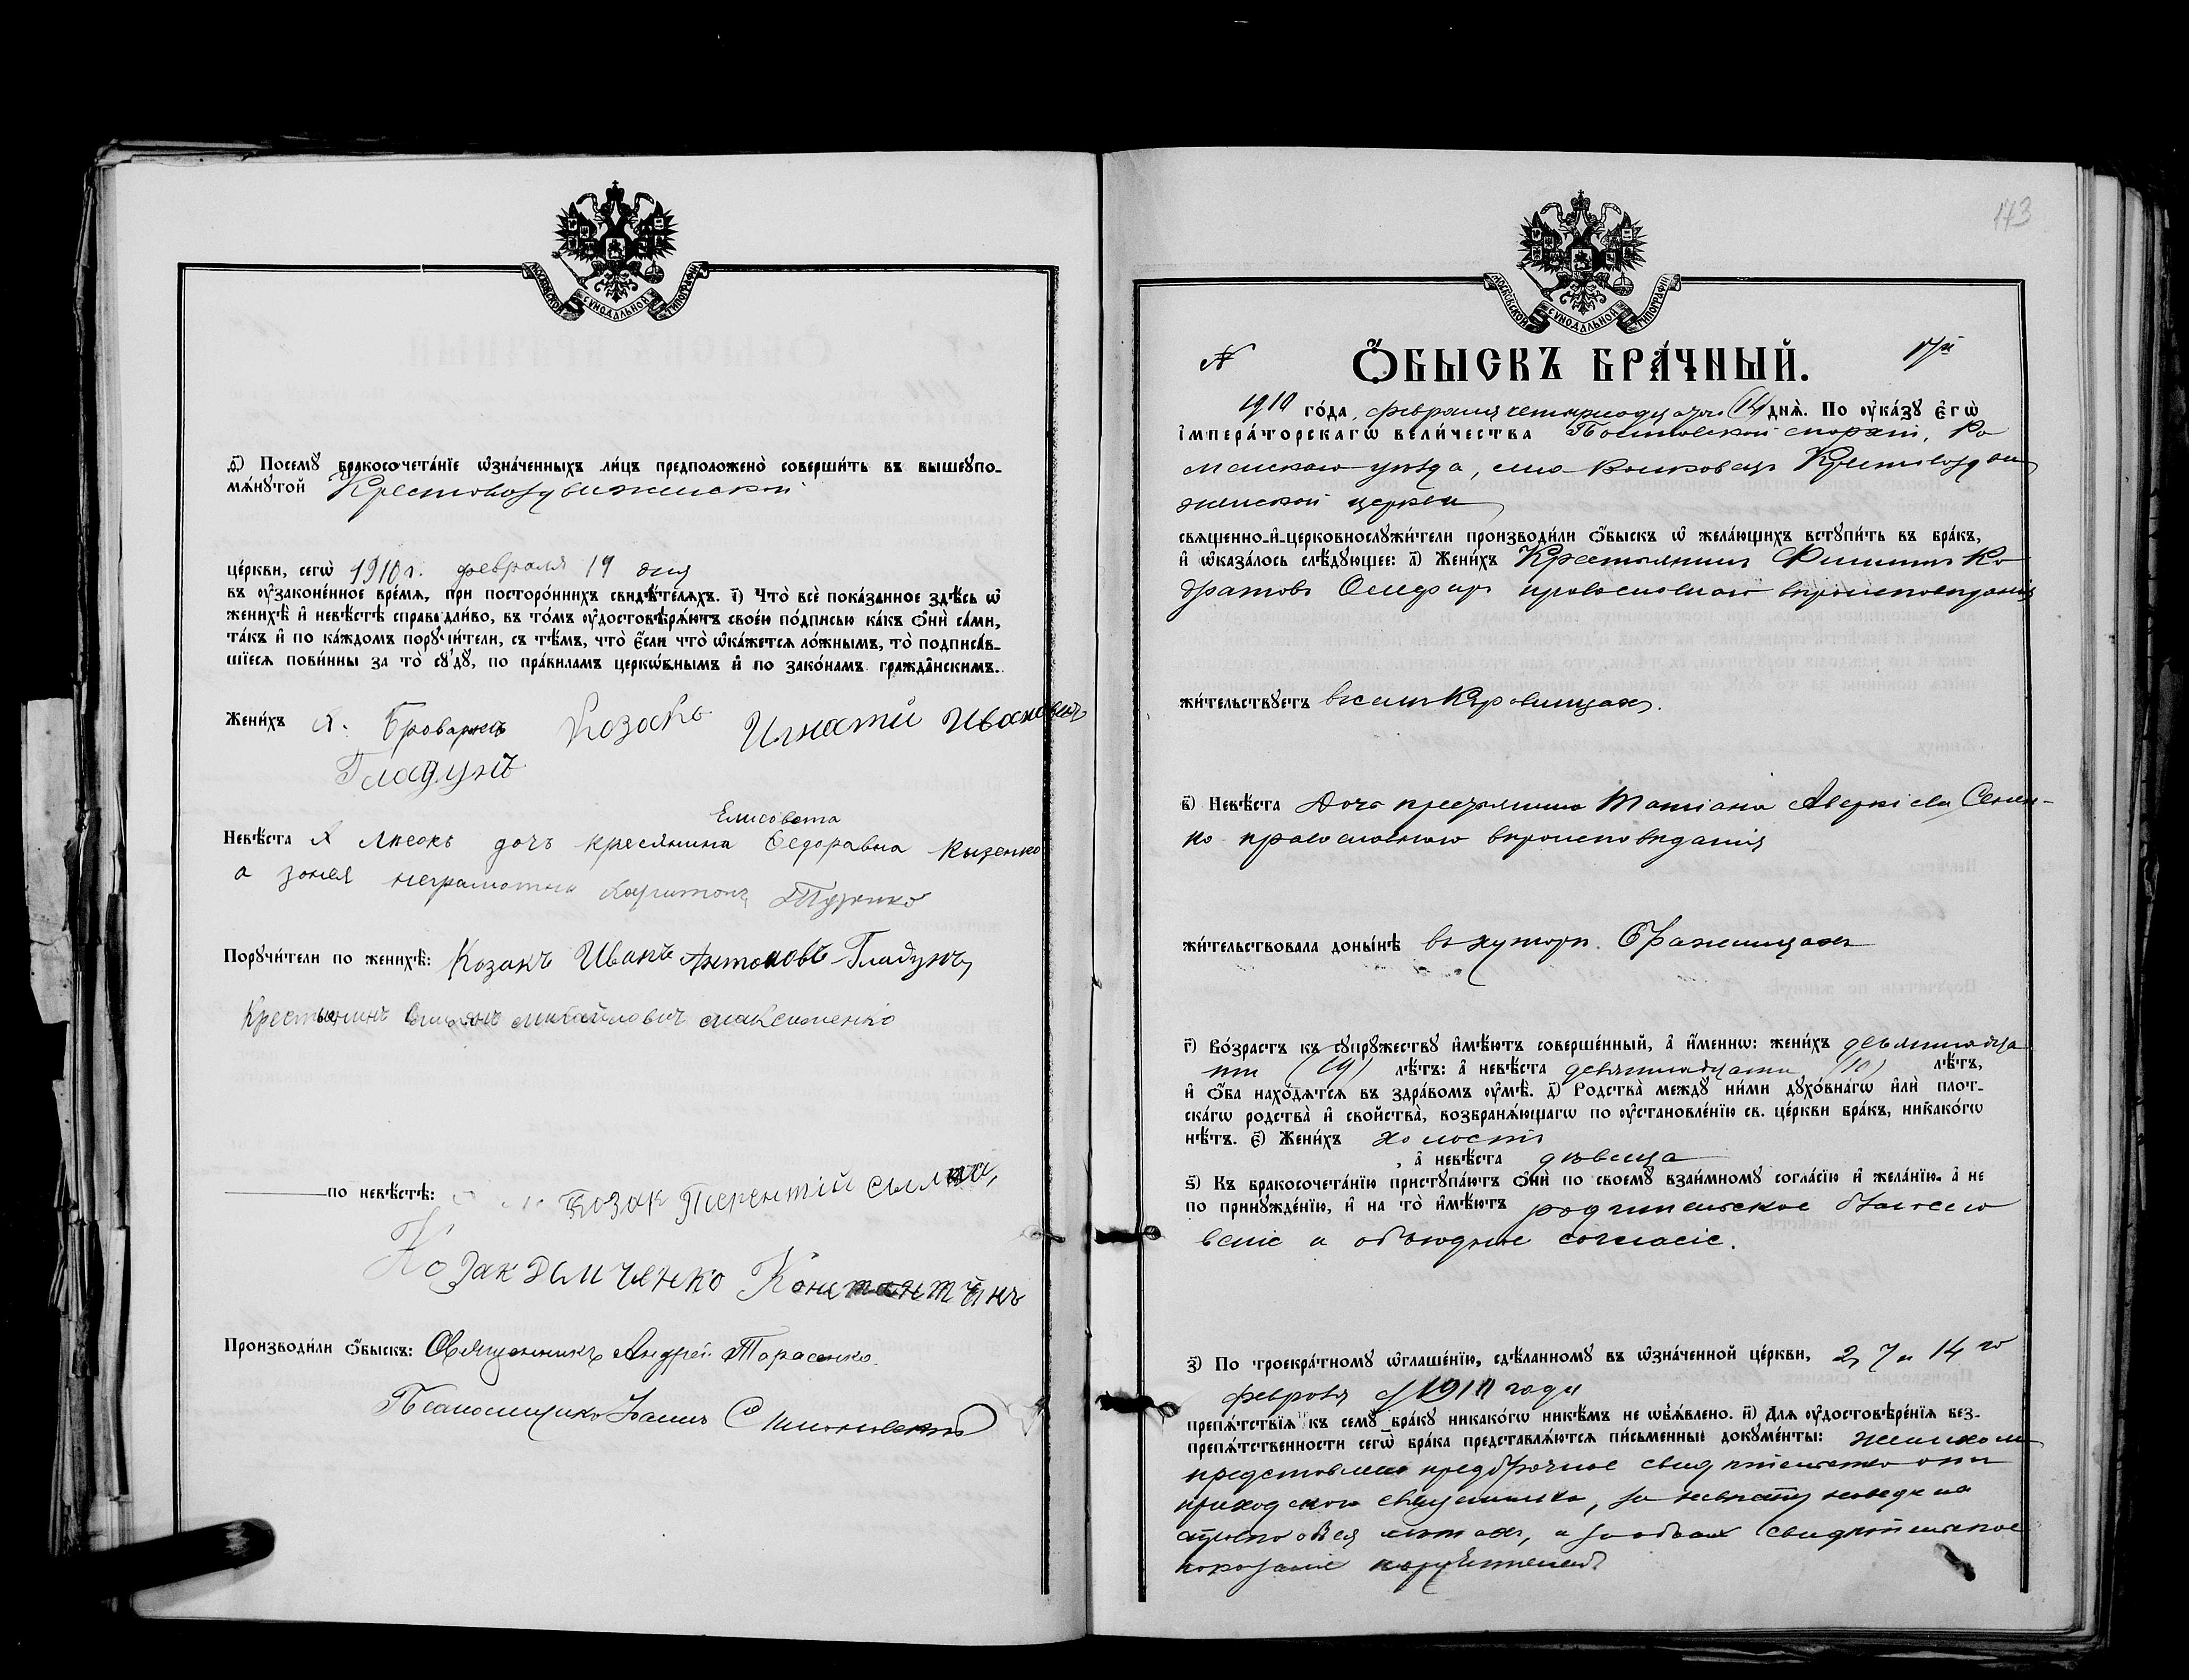 МОСКОВСКОЙ СѴНОДАЛЬНОЙ ТИПОГРАФІИ
ѳ҃) Посемꙋ бракосочета́нїе ѡзна́ченныхъ ли́цъ предположено̀ соверши́ть въ вышеꙋпо-
мѧ́нꙋтой Крестовоздвиженской
це́ркви, сегѡ̀ 1910 г. февраля 19 дня
въ ᲂу҆зако́ненное вре́мѧ, при посторо́ннихъ свидѣ́телѧхъ. і҃) Что̀ всѐ пока́занное здѣ́сь ѡ҆
женихѣ̀ и҆ невѣ́стѣ справедли́во, въ то́мъ ᲂу҆достовѣрѧ́ютъ свое́ю по́дписью ка́къ ѻ҆нѝ са́ми,
та́къ и҆ по ка́ждомъ порꙋчи́тели, съ тѣ́мъ, что̀ є҆́сли что̀ ѡ҆ка́жетсѧ ло́жнымъ, то̀ подписа́в-
шїесѧ пови́нны за то̀ сꙋдꙋ̀, по пра́виламъ церкѡ́внымъ и҆ по зако́намъ гражда́нскимъ.
Жени́хъ Я. Козакъ Игнатій Ивановичъ
Гладунъ
Елисовета
Невѣ́ста Я дочъ кресянина Федоравна Кызенко
а зонея неграмотна Харитонъ
Порꙋчи́тели по женихѣ̀: Козакъ Иванъ Антоновъ Гладунъ
Крестьянинъ михайловичъ максименко
по невѣ́стѣ: Козак Терентій
Козак Демченко Константинъ
Производи́ли ѻ҆́быскъ: Священникъ Андрей Тарасенко
Псаломщикъ Іоаннъ
173
МОСКОВСКОЙ СѴНОДАЛЬНОЙ ТИПОГРАФІИ
№ Ѻ҆́БЫСКЪ БРА́ЧНЫЙ. 17й
1910 го́да, февраля четырнадцатого (14) днѧ̀. По ᲂу҆ка́зꙋ є҆гѡ̀
і҆мпера́торскагѡ вели́чества Полтавской епархіи, Ро
менскаго уѣзда, села Волковецъ Крестовоздви
женской церкви
свѧще́нно-и҆-церковнослꙋжи́тели производи́ли ѻ҆́быскъ ѡ҆ жела́ющихъ встꙋпи́ть въ бра́къ,
и҆ ѡ҆каза́лось слѣ́дꙋющее: а҃) Жени́хъ Крестьянинъ Филиппъ Ко
дратовъ православнаго вѣроисповѣданія
жи́тельствꙋетъ въ селѣ Коровинцахъ.
в҃) Невѣ́ста Дочь крестьянина Татіана Аверкіева Семен-
ко православнаго вѣроисповѣданія
жи́тельствовала доны́нѣ въ хуторѣ
г҃) Во́зрастъ къ сꙋпрꙋ́жествꙋ и҆мѣ́ютъ соверше́нный, а҆ и҆́меннѡ: жени́хъ девятнадца
ти (19) лѣ́тъ: а҆ невѣ́ста девятнадцати (19) лѣ́тъ,
и҆ ѻ҆́ба нахо́дѧтсѧ въ здра́вомъ ᲂу҆мѣ̀. д҃) Родства̀ междꙋ̀ ни́ми дꙋхо́внагѡ и҆лѝ плот-
ска́гѡ родства̀ и҆ свойства̀, возбранѧ́ющагѡ по ᲂу҆становле́нїю св. це́ркви бра́къ, никако́гѡ
нѣ́тъ. є҃) Жени́хъ холостъ
, а҆ невѣ́ста дѣвица
ѕ҃) Къ бракосочета́нїю пристꙋпа́ютъ ѻ҆нѝ по своемꙋ̀ взаи́мномꙋ согла́сїю и҆ жела́нїю, а҆ не
по принꙋжде́нїю, и҆ на то̀ и҆мѣ́ютъ родительское благосло
веніе и обоюдное согласіе.
з҃) По троекра́тномꙋ ѡ҆глаше́нїю, сдѣ́ланномꙋ въ ѡ҆зна́ченной це́ркви, 2, 7 и 14 го
февраля 1910 года
препѧ́тствїѧ къ семꙋ̀ бра́кꙋ никако́гѡ никѣ́мъ не ѡ҆б̾ѧ́влено. и҃) Для ᲂу҆достовѣре́нїѧ без-
препѧ́тственности сегѡ̀ бра́ка представлѧ́ютсѧ пи́сьменные докꙋме́нты: женихомъ
представлено предбрачное свидѣтельство отъ
приходского священника, за невѣсту
а за обоихъ свидѣтельское
показаніе поручителей.